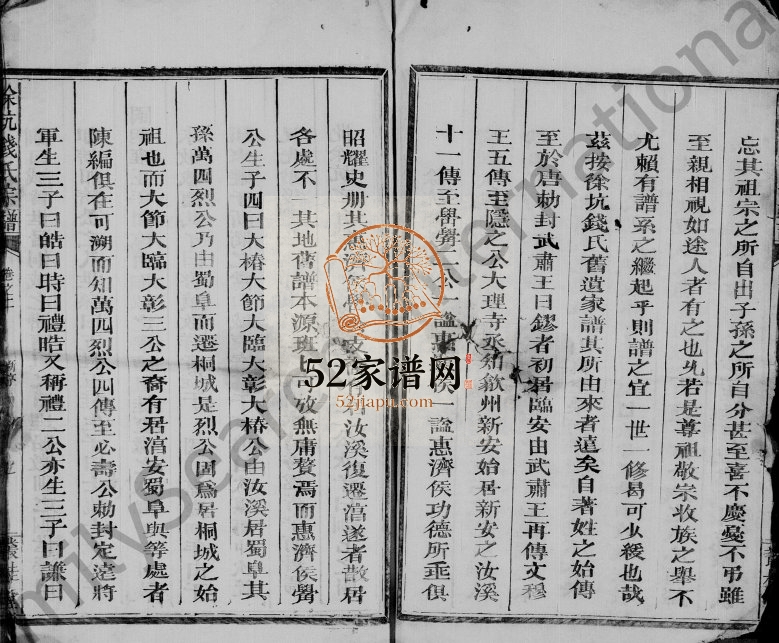 忘其祖宗之所自出子孫之所自分甚至喜不慶憂不弔雖
至親相視如途人者有之也兂若是尊祖敬宗收族之舉不
尤賴有譜系之繼起乎則譜之宜一世一修曷可少緩也哉
茲按徐坑錢氏舊遺家譜其所由來者遠矣自著姓之始傳
至於唐勅封武肅王曰鏐者初居臨安由武肅王再傳文穆
王五傳至隱之公大理寺丞
歙州新安始居新安之汝溪
十一傳至
公一謚惠
侯一謚惠濟侯功德所垂俱
昭耀史册其惠濟侯
汝溪復遷
遂者散居
各處不一其地舊譜本源班
可攷無庸贅焉而惠濟侯
公生子四曰大椿大節大臨大彰大椿公由汝溪居蜀阜其
孫萬四烈公乃由蜀阜而遷桐城是烈公固爲居桐城之始
祖也而大節大臨大彰三公之裔有居淳安蜀阜與等處者
陳編俱在可溯而知萬四烈公四傳至必壽公勅封定遠將
軍生三子曰皓曰時曰禮皓又稱禮二公亦生三子曰謙曰
徐坑錢氏宗譜
卷之
52家谱网
52jiapu.com